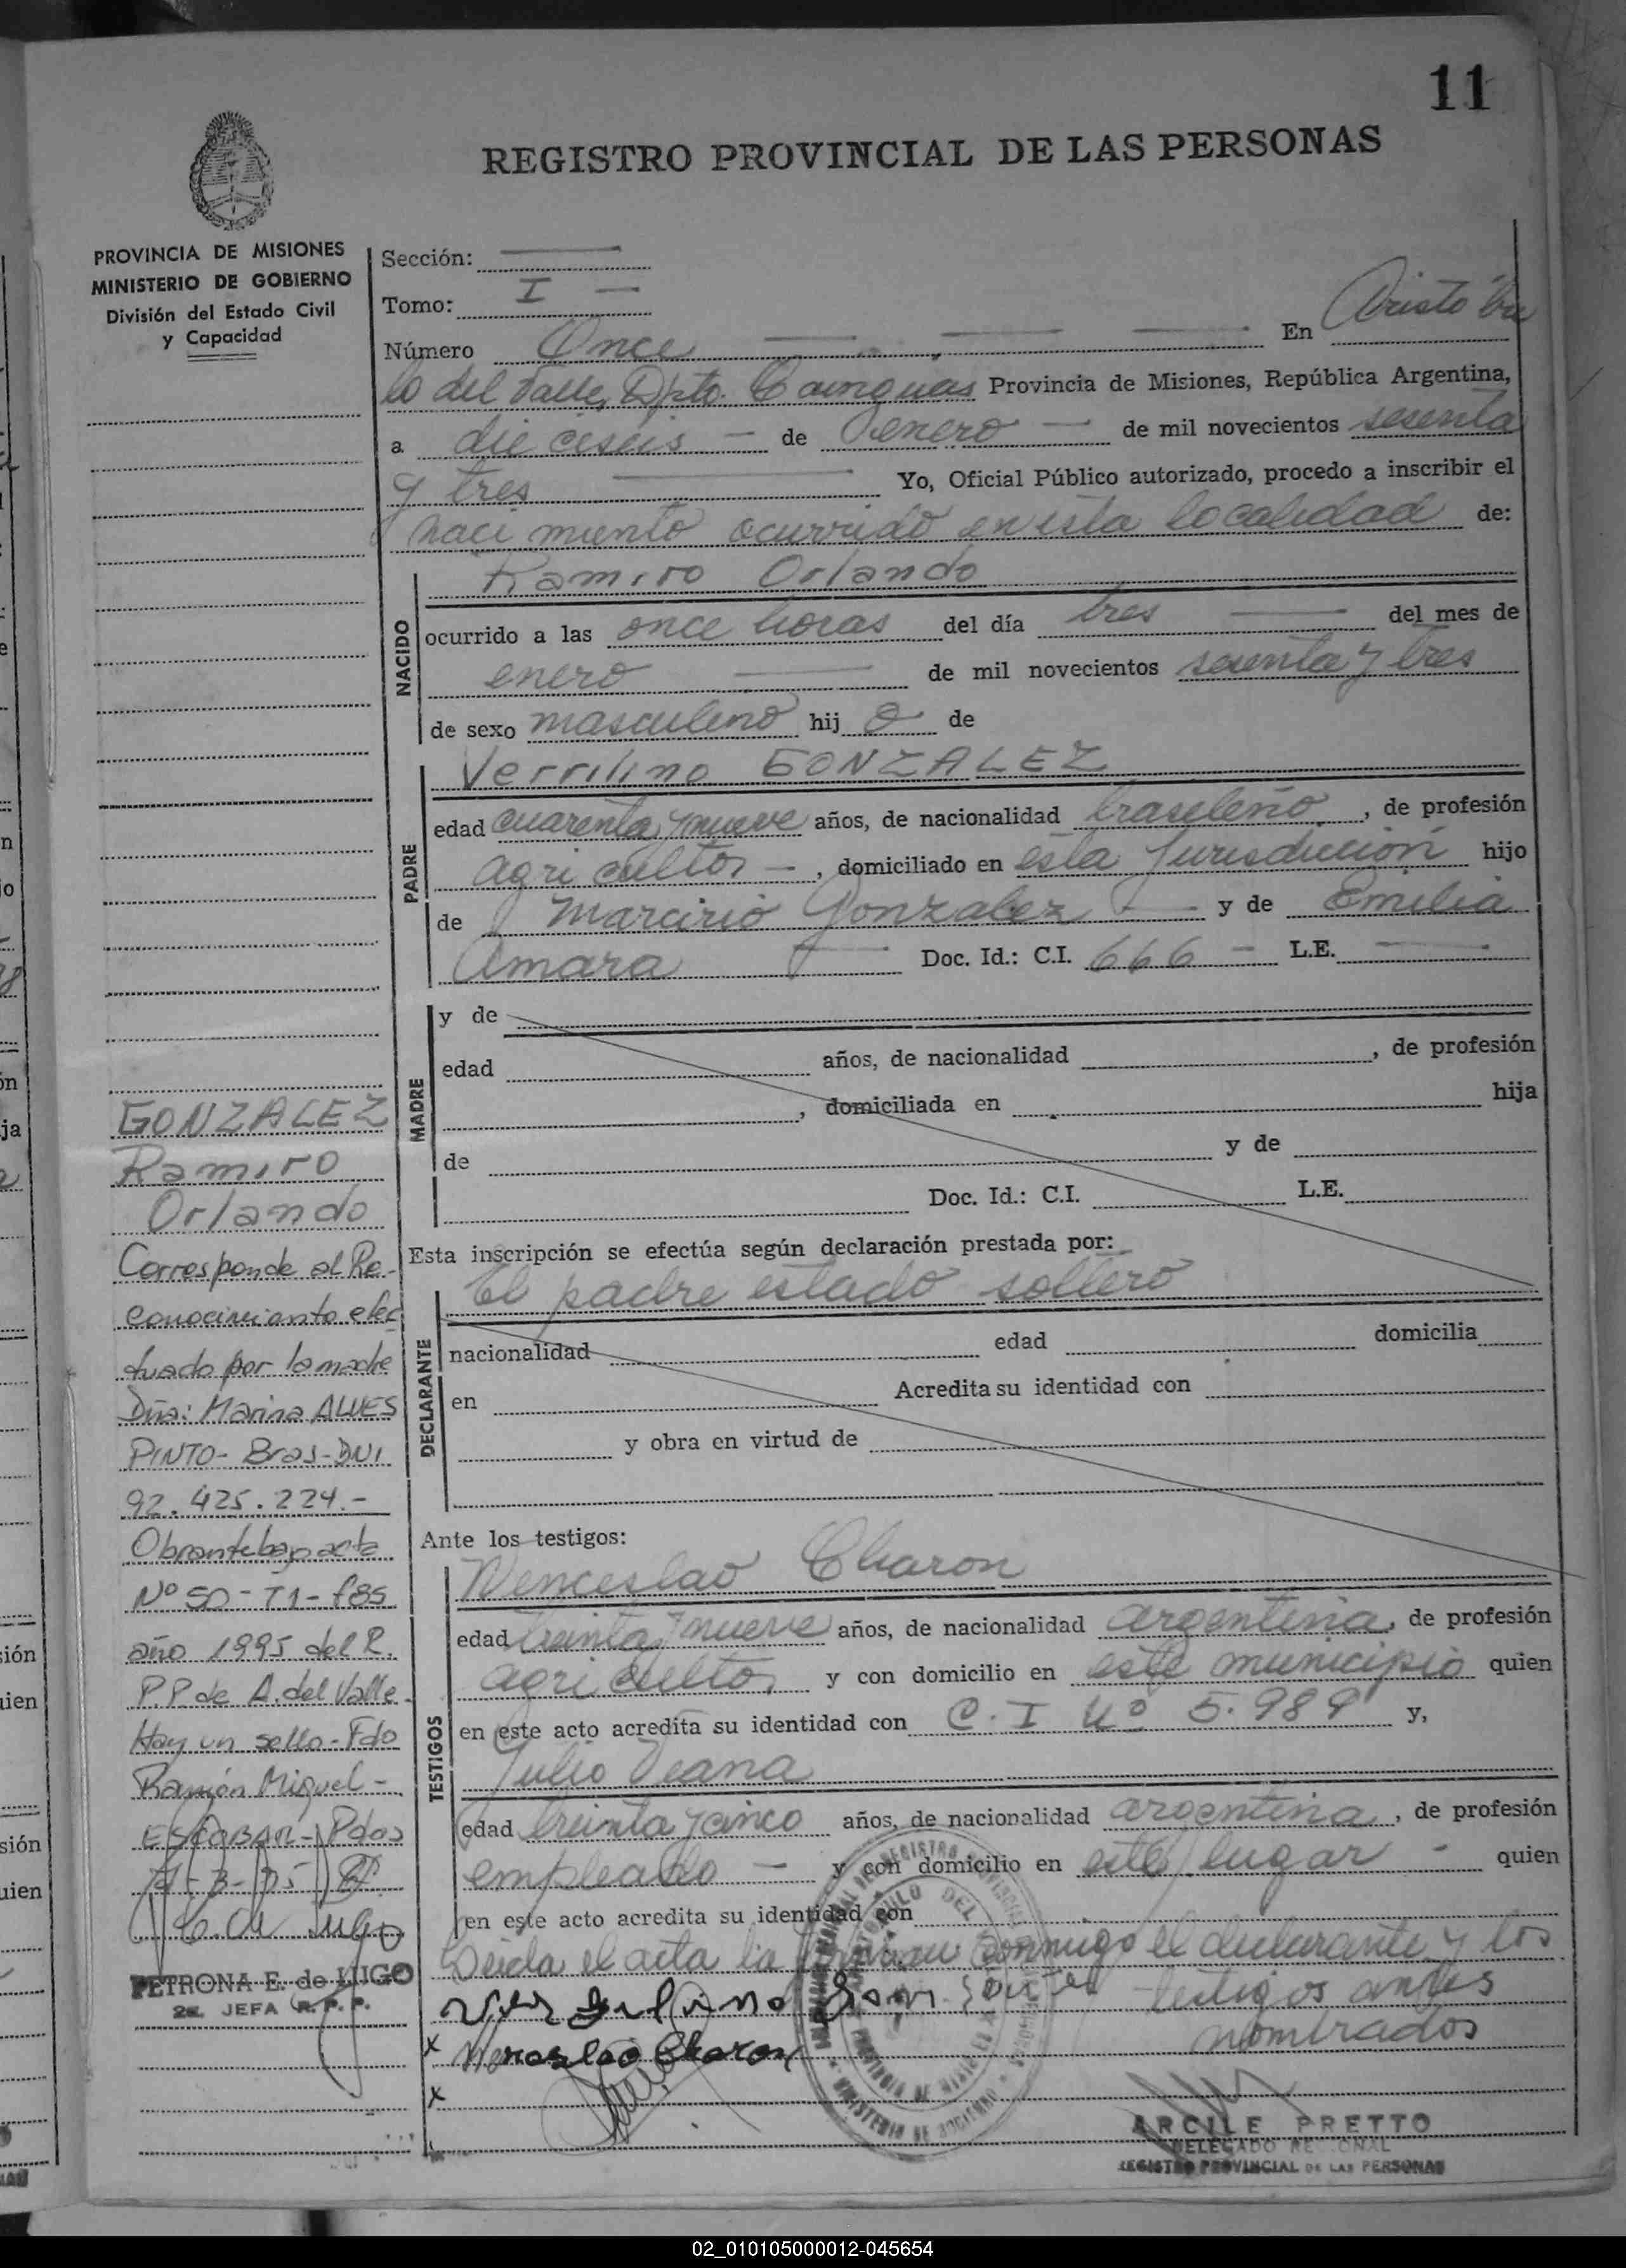 11
REGISTRO PROVINCIAL DE LAS PERSONAS
PROVINCIA DE MISIONES
MINISTERIO DE GOBIERNO
División del Estado Civil
y Capacidad
Sección:
Tomo: I
Número Once En Aristóbu
lo del Valle, Dpto. Cainguas Provincia de Misiones, República Argentina,
a dieciseis de enero de mil novecientos sesenta
y tres Yo, Oficial Público autorizado, procedo a inscribir el
nacimiento ocurrido en esta localidad de:
Ramiro Orlando
NACIDO
ocurrido a las once horas del día tres del mes de
enero de mil novecientos sesenta y tres
de sexo masculino hijo de
PADRE
Verrilino GONZALEZ
edad cuarenta y nueve años, de nacionalidad brasileño, de profesión
agricultor, domiciliado en esta Jurisdicción hijo
de Marcirio Gonzalez y de Emilia
Amara Doc. Id.: C.I. 666 L.E.
MADRE
y de
edad años, de nacionalidad , de profesión
, domiciliada en hija
de y de
Doc. Id.: C.I. L.E.
Esta inscripción se efectúa según declaración prestada por:
El padre estado soltero
DECLARANTE
nacionalidad edad domicilia
en Acredita su identidad con
y obra en virtud de
Ante los testigos:
Wenceslao Charon
TESTIGOS
edad treinta y nueve años, de nacionalidad argentina, de profesión
agricultor y con domicilio en este municipio quien
en este acto acredita su identidad con C.I Nº 5.989 y,
Julio Veana
edad treinta y cinco años, de nacionalidad argentina, de profesión
empleado y con domicilio en este lugar quien
en este acto acredita su identidad con
Leida el acta la firman conmigo el declarante y los
testigos antes
nombrados
x Wenceslao Charon
x
ARCILE PRETTO
DELEGADO REGIONAL
REGISTRO PROVINCIAL DE LAS PERSONAS
GONZALEZ
Ramiro
Orlando
Corresponde al Re-
conocimiento efec
tuado por la madre
Dña: Marina ALVES
PINTO- Bras-DNI
92.425.224.-
Obrante bajo acta
Nº 50-T1-f85
año 1995 del R.
P.P de A. del Valle-
Hay un sello-Fdo
Ramón Miguel-
ESCOBAR- Pdos
PETRONA E. de LUGO
2a. JEFA R.P.P.
02_010105000012-045654